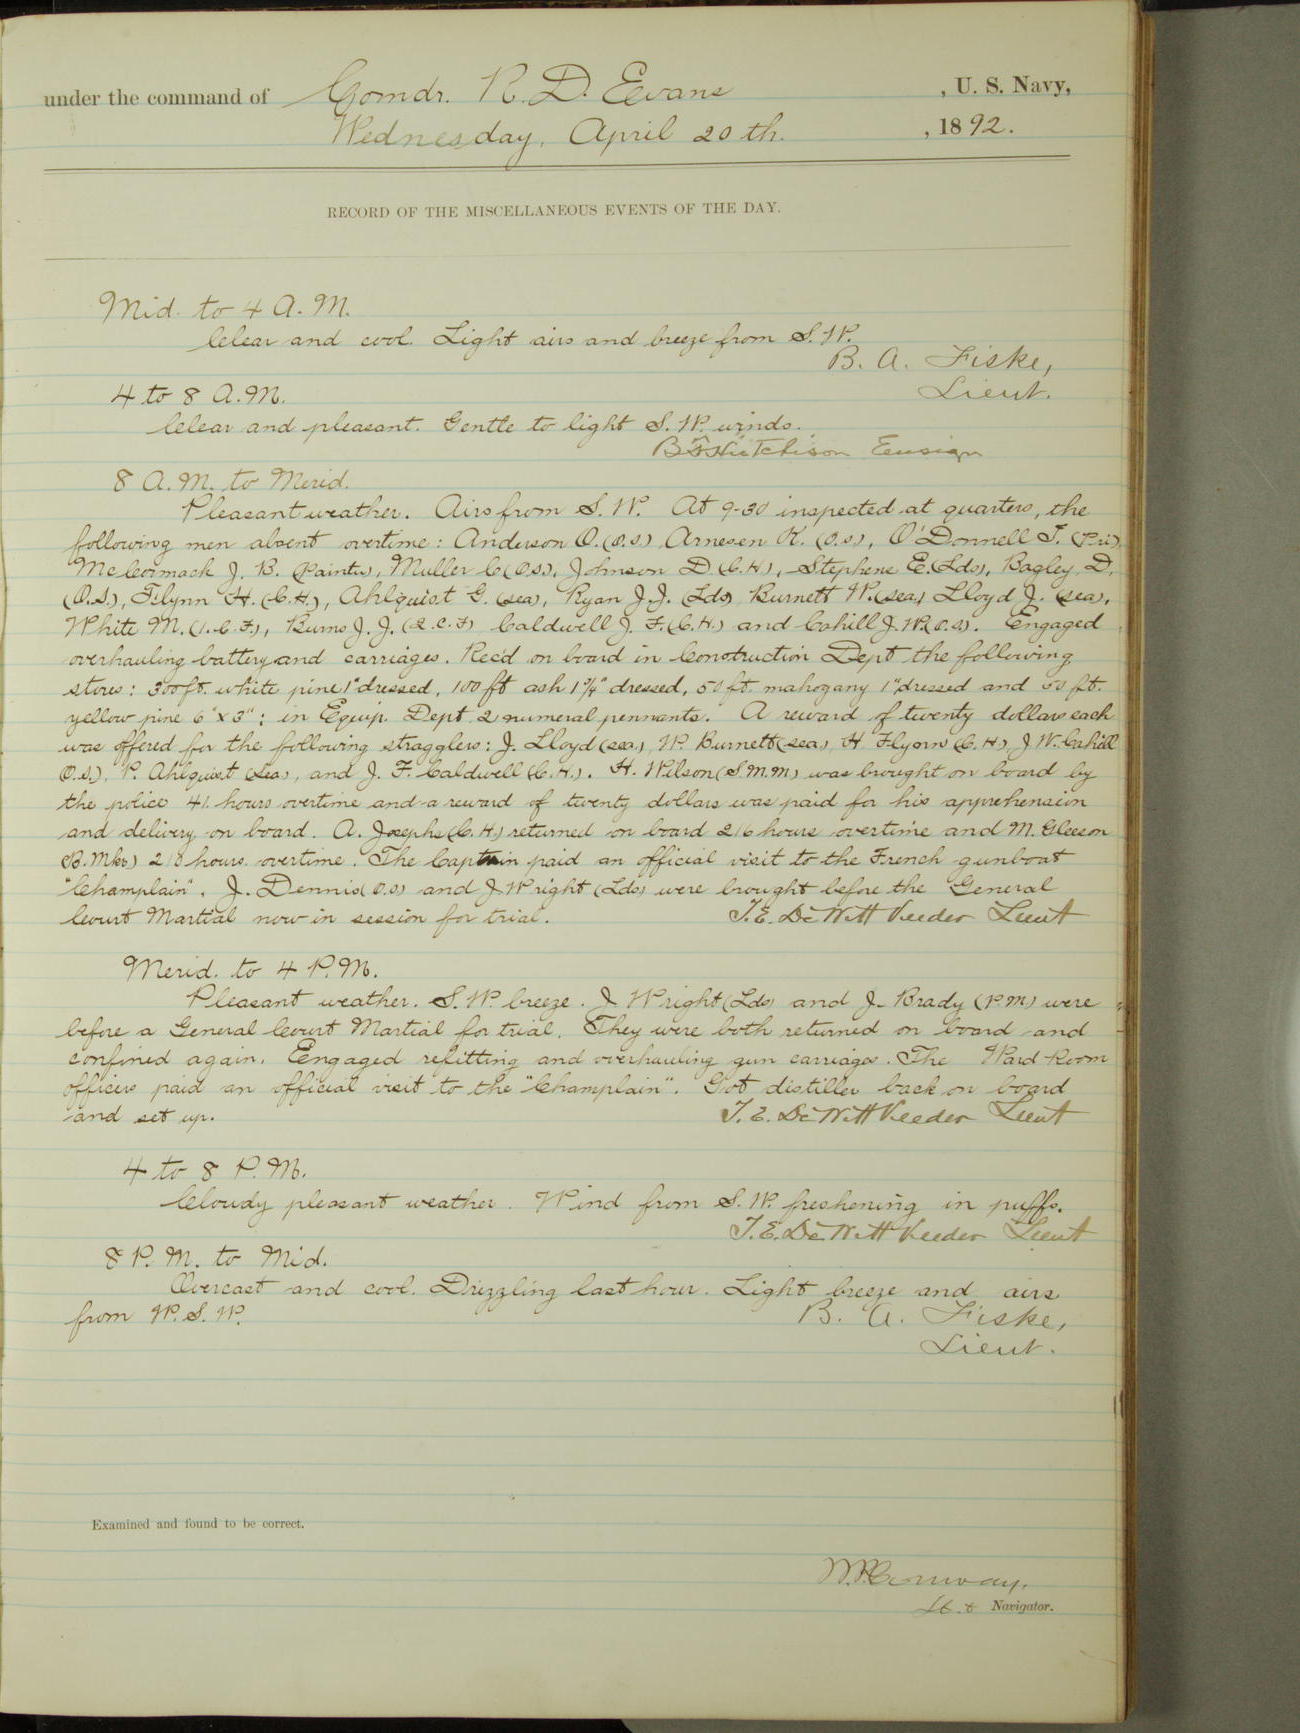 under the command of Comdr. R. D. Evans , U. S. Navy,
Wednesday, April 20th. , 1892.
RECORD OF THE MISCELLANEOUS EVENTS OF THE DAY.
Mid. to 4 A.M.
Clear and cool. Light airs and breeze from S.W.
B. A. Fiske,
Lieut.
4 to 8 A.M.
Clear and pleasant. Gentle to light S.W. winds.
B F Hutchison Ensign
8 A.M. to Merid.
Pleasant weather. Airs from S.W. At 9-30 inspected at quarters, the
following men absent overtime: Anderson O. (O.S.) Arnesen K. (O.S.), O'Donnell T. (Pri)
McCormack J. B. (Painter), Muller C (O.S.), Johnson D. (C.H.), Stephens E. (Lds), Bagley, D.
(O.S.), Flynn H. (C.H.), Ahlquist G. (sea), Ryan J.J. (Lds) Burnett W. (sea) Lloyd J. (sea),
White M. (1.C.F.), Burns J.J. (2.C.F) Caldwell J. F. (C.H.) and Cahill J.W. (O.S.). Engaged
overhauling battery and carriages. Rec'd on board in Construction Dept the following
stores: 300 ft. white pine 1" dressed, 100 ft ash 1¾" dressed, 50 ft. mahogany 1" dressed and 50 ft.
yellow pine 6" x 3"; in Equip. Dept. 2 numeral pennants. A reward of twenty dollars each
was offered for the following stragglers: J. Lloyd (sea), W. Burnett (sea), H Flynn (C.H), J W. Cahill
(O.S.), P. Ahlquist (Sea), and J. F. Caldwell (C.H.). H. Wilson (S.M.M) was brought on board by
the police 41 hours overtime and a reward of twenty dollars was paid for his apprehension
and delivery on board. A. Josephs (C.H.) returned on board 216 hours overtime and M. Gleeson
(B.Mkr) hours overtime. The Captain paid an official visit to the French gunboat
"Champlain". J. Dennis (O.S) and J Wright (Lds) were brought before the General
Court Martial now in session for trial. T.E. DeWitt Veeder Lieut
Merid. to 4 P.M.
Pleasant weather. S.W. breeze. J Wright (Lds) and J. Brady (P.M) were
before a General Court Martial for trial. They were both returned on board and
confined again. Engaged refitting and overhauling gun carriages. The Ward Room
officers paid an official visit to the "Champlain". Got distiller back on board
and set up. T. E. DeWitt Veeder Lieut
4 to 8 P.M.
Cloudy pleasant weather. Wind from S.W. freshening in puffs.
T.E. DeWitt Veeder Lieut
8 P.M. to Mid.
Overcast and cool. Drizzling last hour. Light breeze and airs
from W.S.W. B. A. Fiske,
Lieut.
Examined and found to be correct.
W.P. Conway,
Lt. & Navigator.